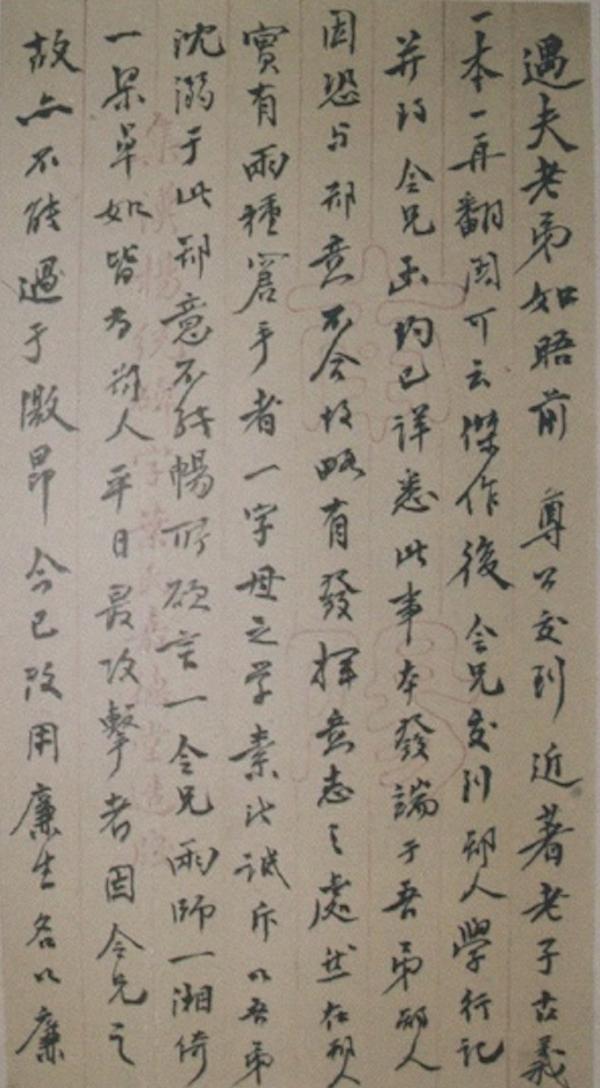 遇夫老弟如晤前 尊公交到 近著老子古義
一本一再翻閱可云傑作後 令兄交到鄙人學行記
并致 令兄函均已詳悉此事本發端于吾弟鄙人
因恐与鄙意不合故略有發揮意志之處然在鄙人
實有兩種窘手者一字母之学素比诚斥以吾弟
沈溺于此鄙意不能暢所欲言一令兄兩師一湘綺
一杲卓如皆为鄙人平日最攻擊者因令兄之
故亦不能過于激昂今已改用廉生名以廉